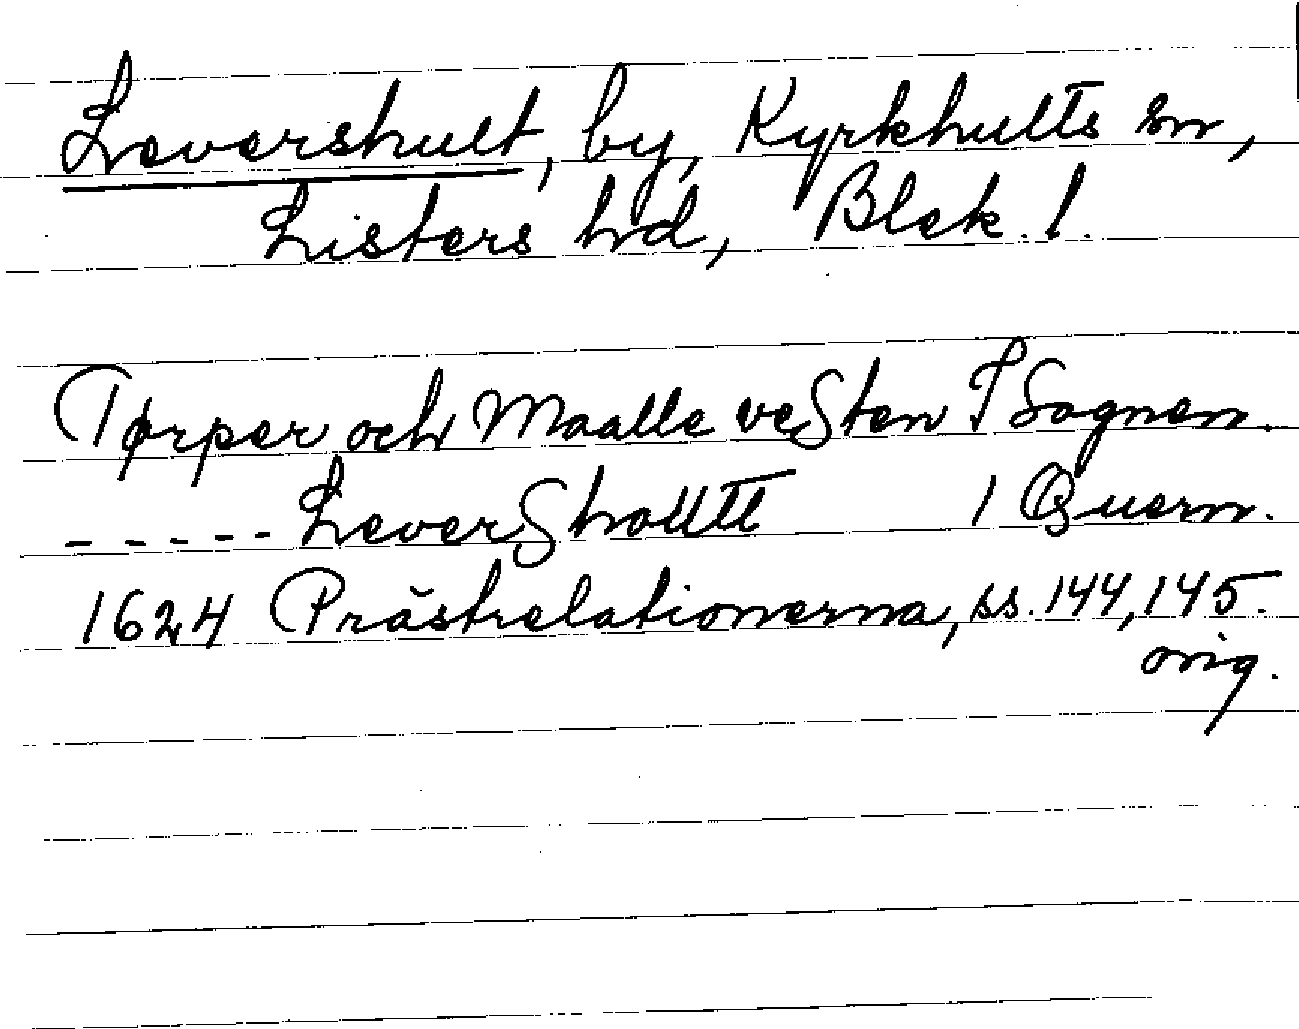 Levershult, by, Kyrkhults sn,
Listers hd, Blek. l.
Tørper och Maalle veSten I Sognen.
----- LeverShoultt 1 Quern.
1624 Prästrelationerna, ss. 144, 145.
orig.